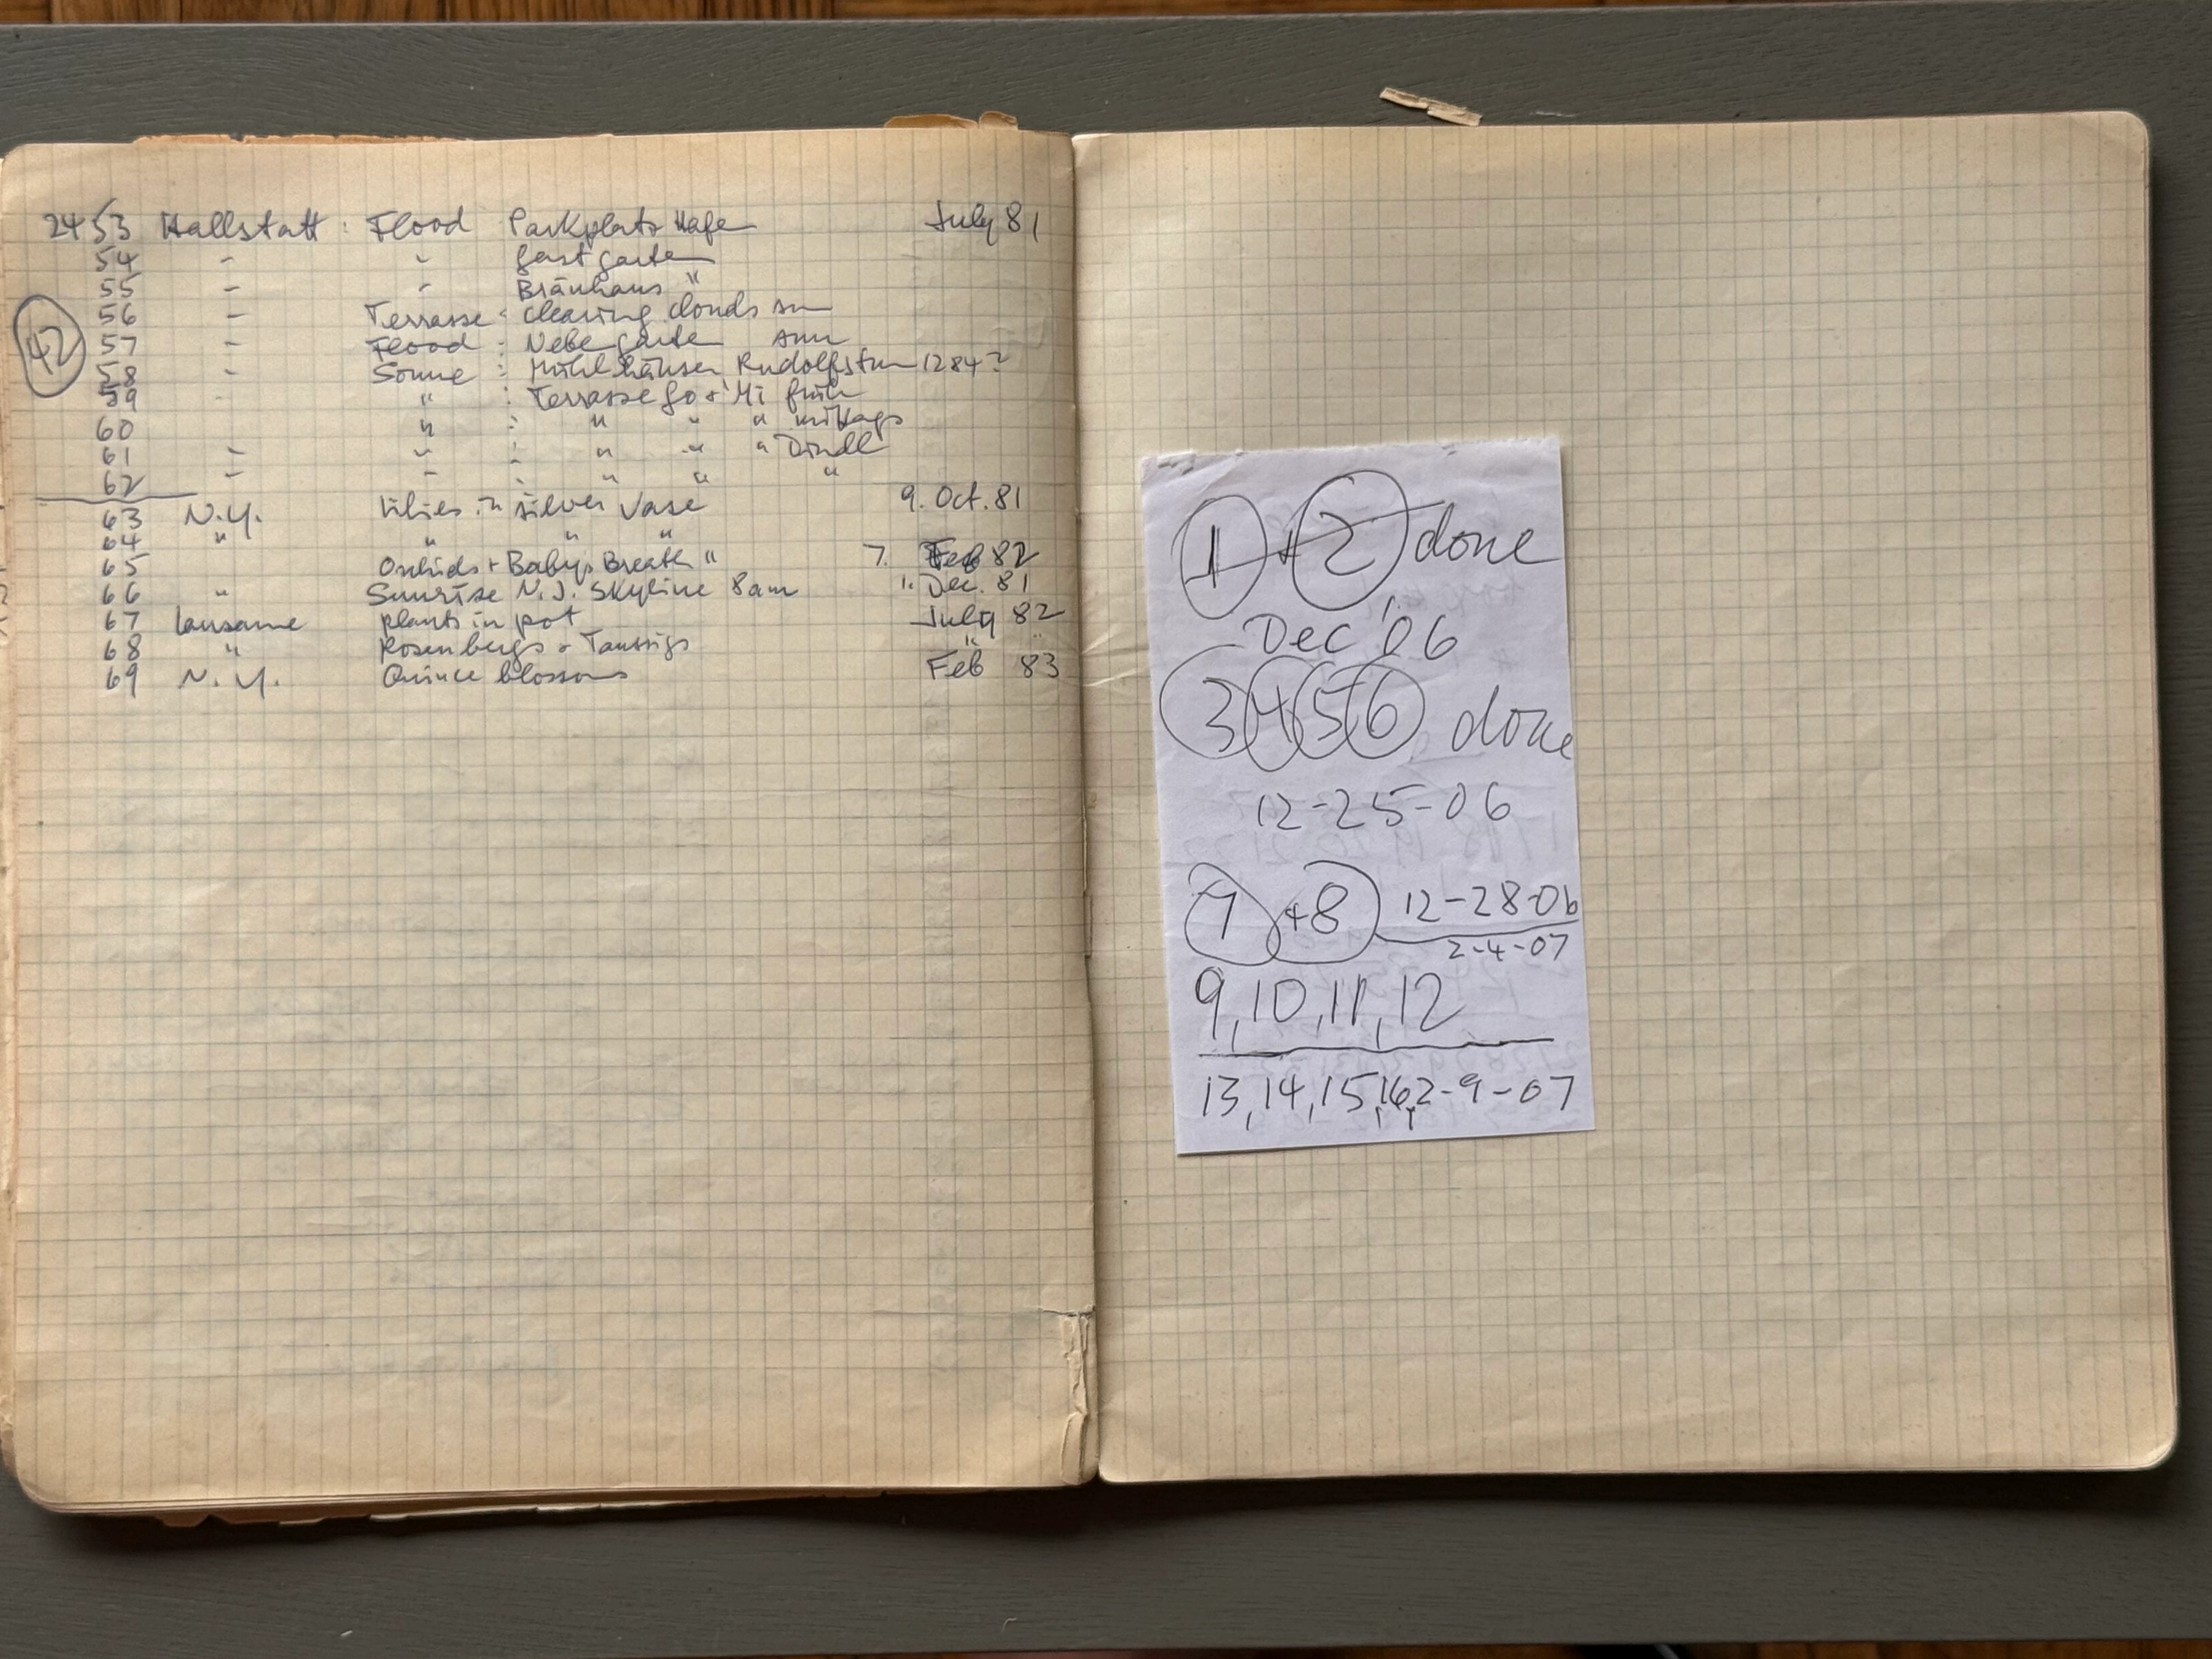 2453 Hallstatt : Flood Parkplatz Hafen July 81
54 " " Gastgarten
55 " " Bräuhaus "
42
56 " Terrasse : clearing clouds sun
57 " Flood : Nebel garten sun
58 " Sonne : Mühl häuser, Rudolfsturm 1284?
59 " : Terrasse Go + Mi früh
60 " : " " " mittags
61 " " : " " " Dirndl
62 " " : " " "
63 N.Y. Lilies in silver Vase 9. Oct. 81
64 " " " "
65 Orchids + Babys Breath " 7. Feb 82
66 " Sunrise N.J. Skyline 8 am " Dec. 81
67 Lausanne plants in pot July 82
68 " Rosenbergs + Taussigs " "
69 N.Y. Quince blossoms Feb 83
1 + 2 done
Dec '06
3 4 5 6 done
12-25-06
7 + 8 12-28-06
2-4-07
9, 10, 11, 12
13, 14, 15, 16, 2-9-07